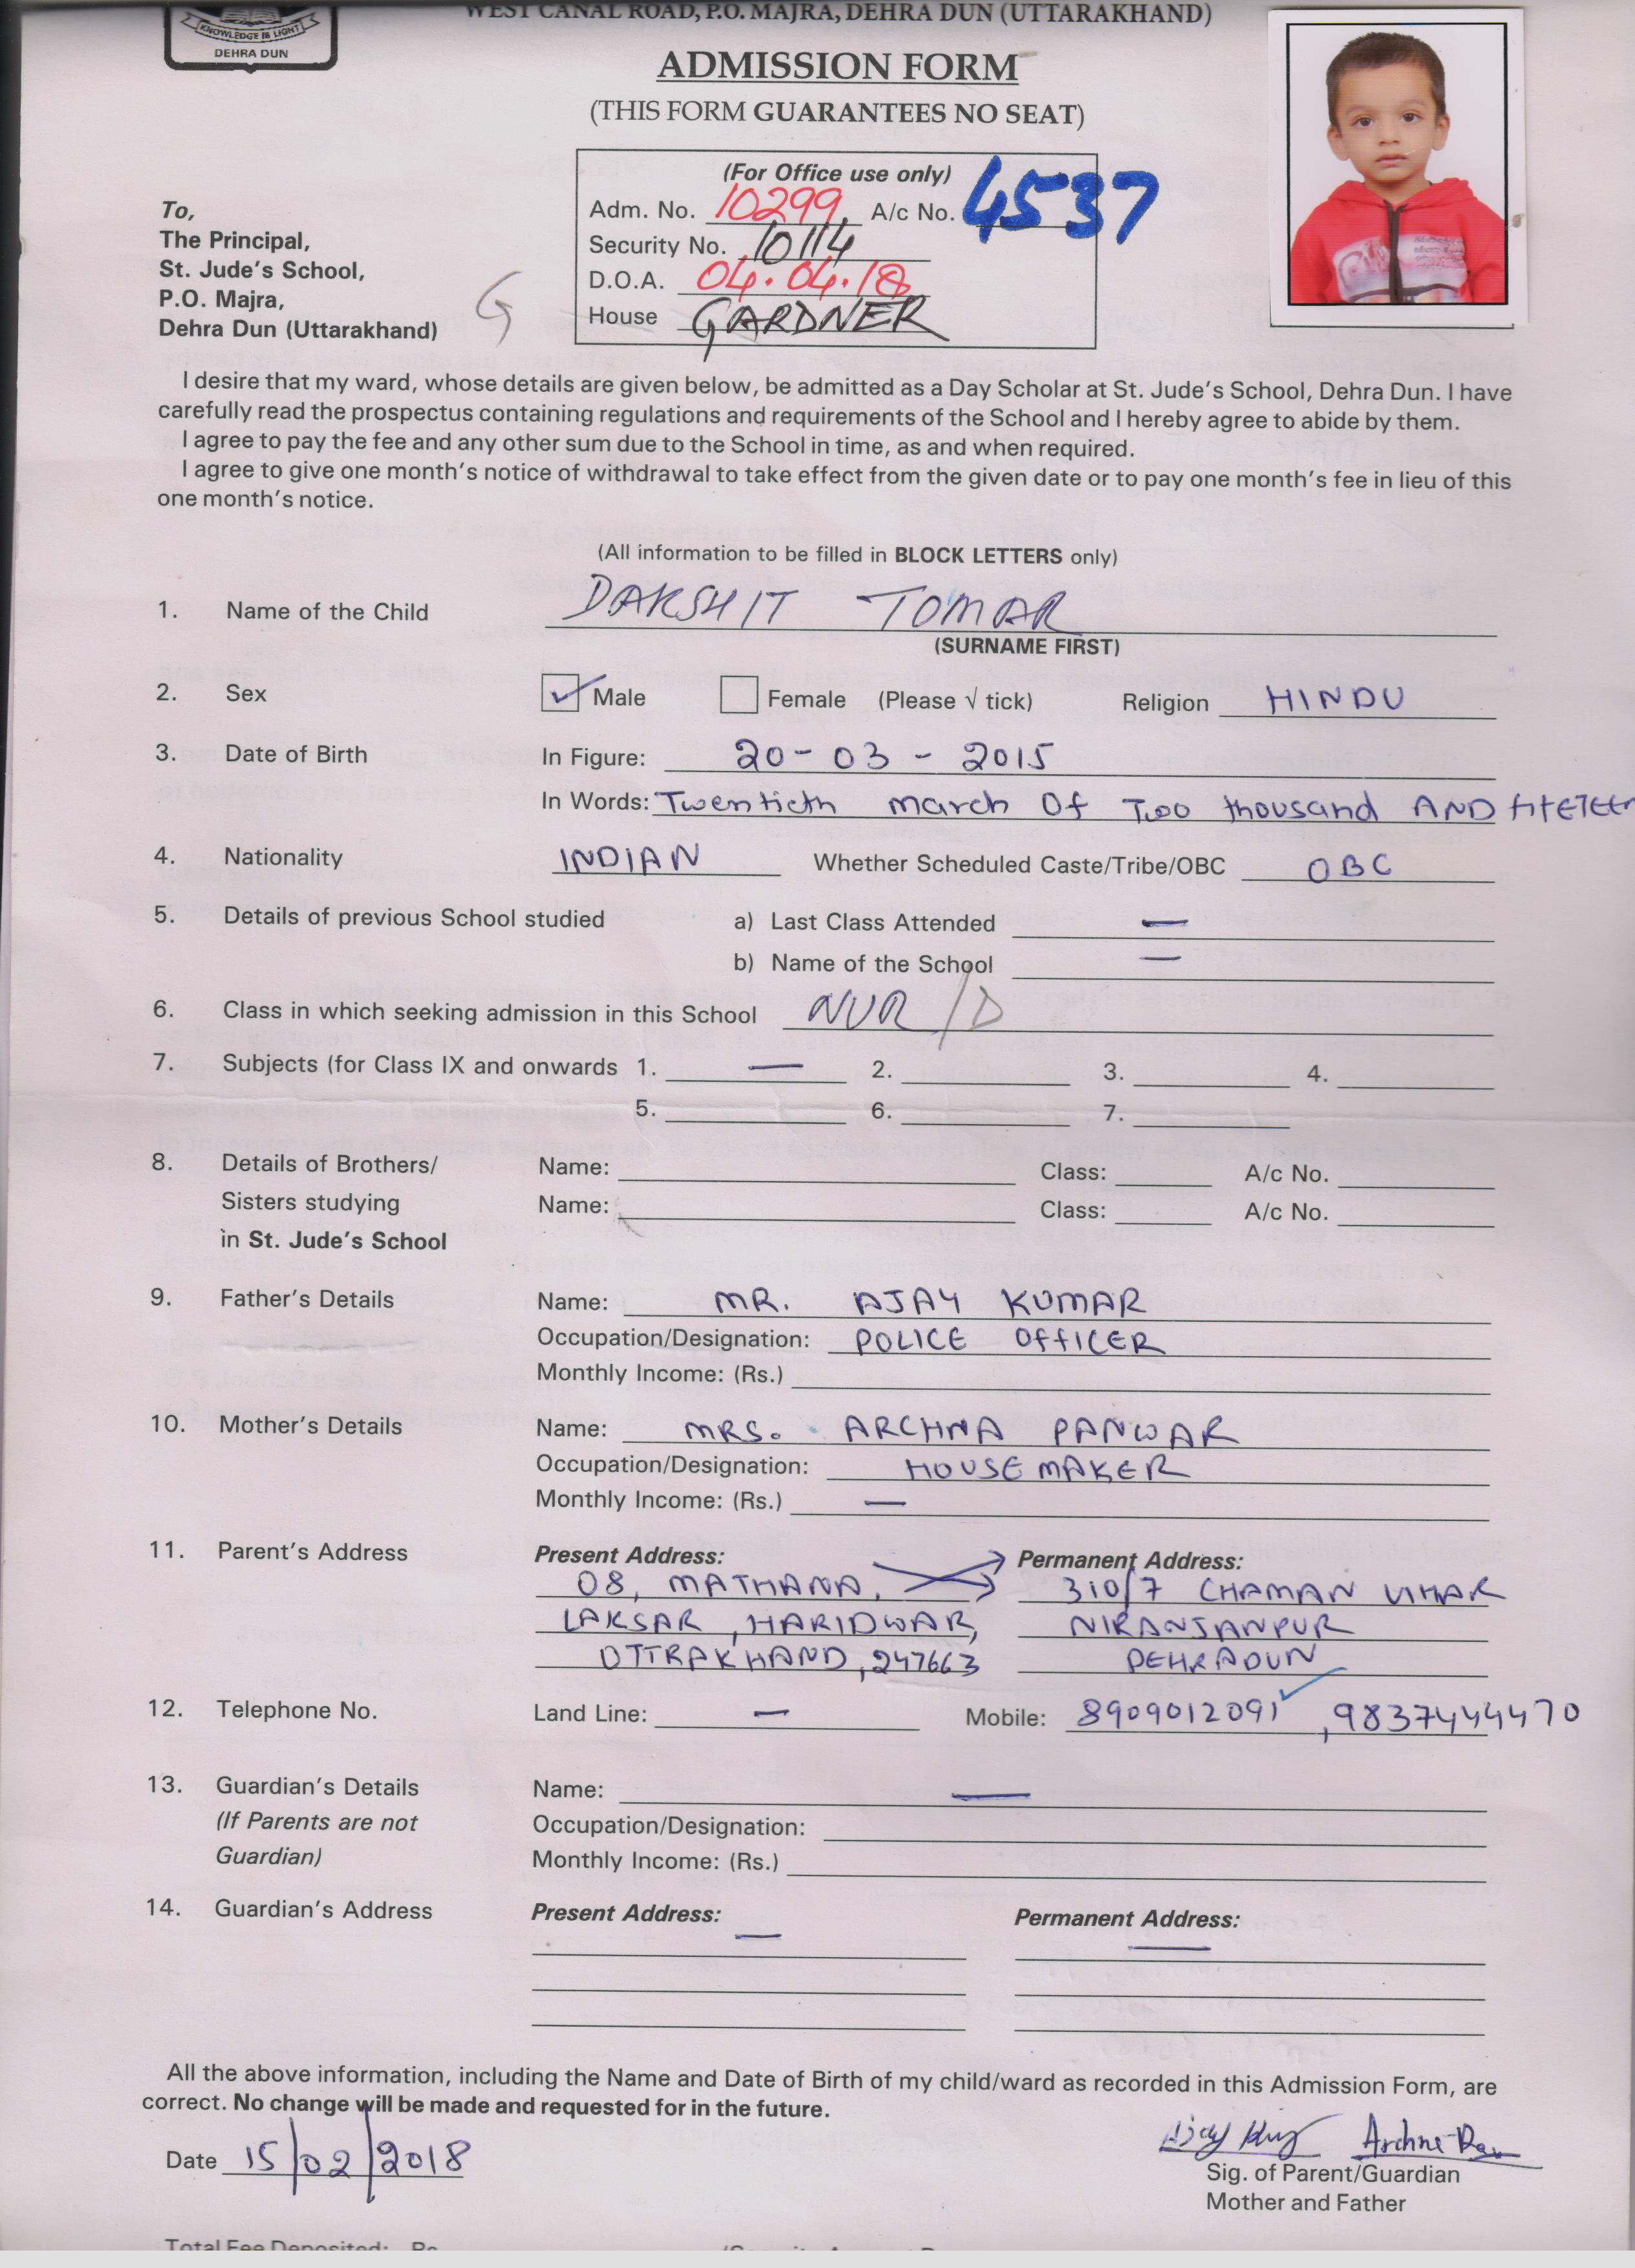 WEST CANAL ROAD, P.O. MAJRA, DEHRA DUN (UTTARAKHAND)
KNOWLEDGE IS LIGHT
DEHRA DUN
ADMISSION FORM
(THIS FORM GUARANTEES NO SEAT)
(For Office use only)
Adm. No. 10299 A/c No. 4537
Security No. 10114
D.O.A. 04.04.18
House GARDNER
To,
The Principal,
St. Jude's School,
P.O. Majra,
Dehra Dun (Uttarakhand)
G
I desire that my ward, whose details are given below, be admitted as a Day Scholar at St. Jude's School, Dehra Dun. I have
carefully read the prospectus containing regulations and requirements of the School and I hereby agree to abide by them.
I agree to pay the fee and any other sum due to the School in time, as and when required.
I agree to give one month's notice of withdrawal to take effect from the given date or to pay one month's fee in lieu of this
one month's notice.
(All information to be filled in BLOCK LETTERS only)
1. Name of the Child DAKSHIT TOMAR
(SURNAME FIRST)
2. Sex ✓ Male Female (Please √ tick) Religion HINDU
3. Date of Birth In Figure: 20-03-2015
In Words: Twentieth march Of Two thousand AND
4. Nationality INDIAN Whether Scheduled Caste/Tribe/OBC OBC
5. Details of previous School studied a) Last Class Attended —
b) Name of the School —
6. Class in which seeking admission in this School NUR/D
7. Subjects (for Class IX and onwards 1. — 2. 3. 4.
5. 6. 7.
8. Details of Brothers/ Name: Class: A/c No.
Sisters studying Name: Class: A/c No.
in St. Jude's School
9. Father's Details Name: MR. AJAY KUMAR
Occupation/Designation: POLICE OFFICER
Monthly Income: (Rs.)
10. Mother's Details Name: MRS. ARCHNA PANWAR
Occupation/Designation: HOUSEMAKER
Monthly Income: (Rs.) —
11. Parent's Address Present Address: Permanent Address:
08, MATHANA, 310/7 CHAMAN VIHAR
LAKSAR, HARIDWAR, NIRANJANPUR
UTTRAKHAND, 247663 DEHRADUN
12. Telephone No. Land Line: — Mobile: 8909012091 ✓, 9837444470
13. Guardian's Details Name: —
(If Parents are not Occupation/Designation:
Guardian) Monthly Income: (Rs.)
14. Guardian's Address Present Address: — Permanent Address: —
All the above information, including the Name and Date of Birth of my child/ward as recorded in this Admission Form, are
correct. No change will be made and requested for in the future.
Date 15/02/2018
Sig. of Parent/Guardian
Mother and Father
Total Fee Deposited: Rs